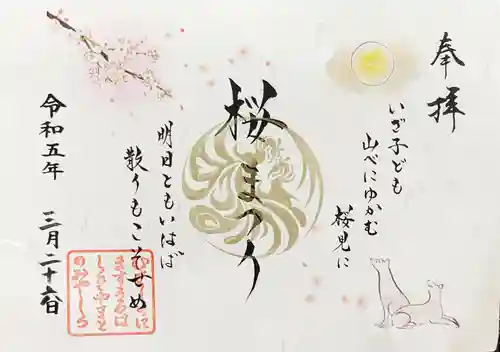 奉拝
いざ子ども
山べにゆかむ
桜見に
桜まつり
明日ともいはば
散りもこそせめ
令和五年　三月二十六日